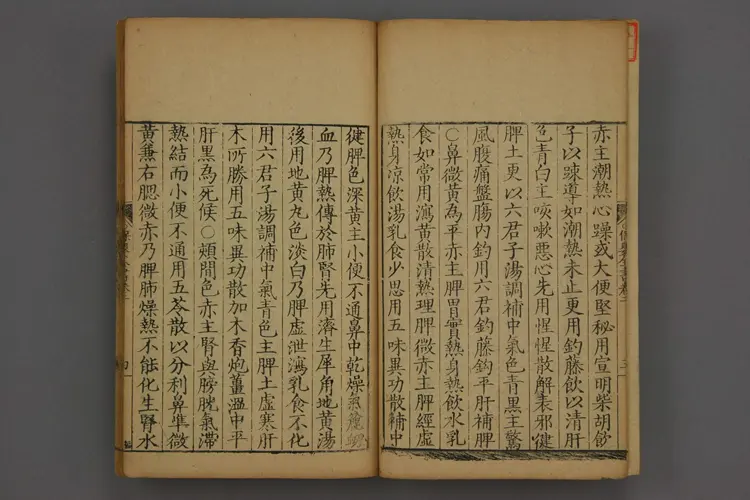 赤主潮熱心躁或大便堅秘用宣明柴胡飲
子以踈導如潮熱未止更用釣藤飲以清肝
色青白主咳嗽惡心先用惺惺散解表邪健
脾土更以六君子湯調補中氣色青黑主驚
風腹痛盤腸内釣用六君釣藤鈎平肝補脾
○鼻微黃為平赤主脾胃實熱身熱飲水乳
食如常用瀉黃散清熱理脾微赤主脾經虚
熱身凉飲湯乳食少思用五味異功散補中
健脾色深黃主小便不通鼻中乾燥氣
血乃脾熱傳於肺腎先用濟生犀角地黃湯
後用地黃丸色淡白乃脾虚泄瀉乳食不化
用六君子湯調補中氣青色主脾土虚寒肝
木所勝用五味異功散加木香炮薑溫中平
肝黑為死候○頰間色赤主腎與膀胱氣滯
熱結而小便不通用五苓散以分利鼻準微
黃兼右腮微赤乃脾肺燥熱不能化生腎水